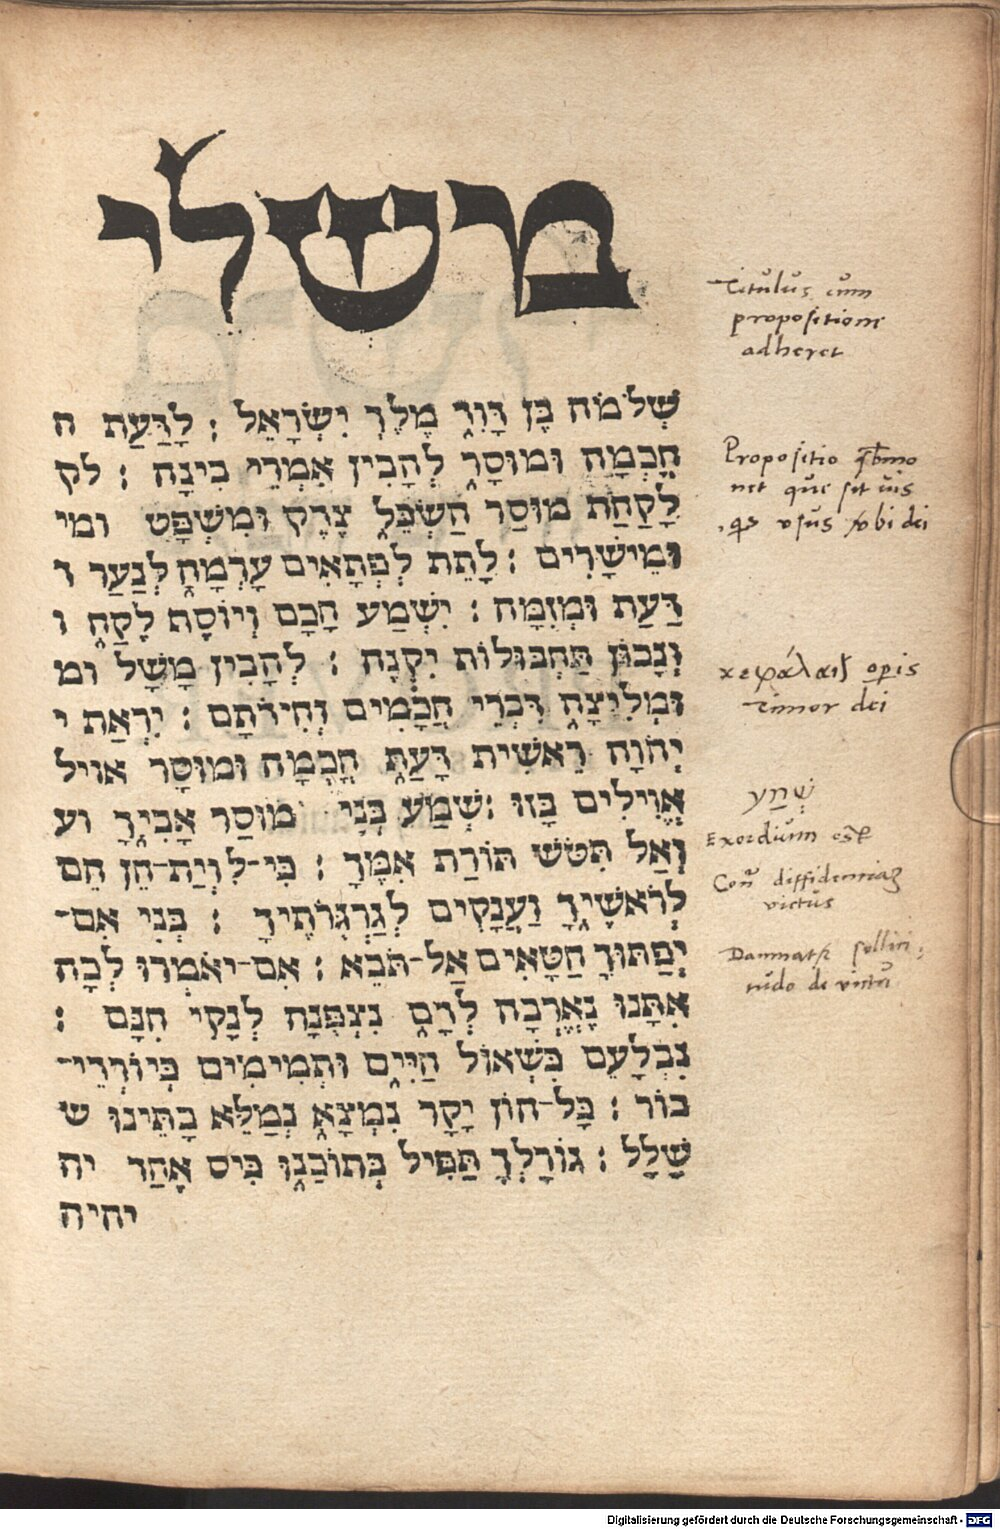 משלי
שְׁלֹמֹה בֶן דָּוִד מֶלֶךְ יִשְׂרָאֵל : לָדַעַת ח
חָכְמָה וּמוּסָר לְהָבִין אִמְרֵי בִינָה : לק
לָקַחַת מוּסַר הַשְׂכֵּל צֶדֶק וּמִשְׁפָּט ומי
וּמֵישָׁרִים : לָתֵת לִפְתָאִים עָרְמָה לְנַעַר ד
דַּעַת וּמְזִמָּה : יִשְׁמַע חָכָם וְיוֹסֶף לֶקַח ו
וְנָבוֹן תַּחְבּוּלוֹת יִקְנֶה : לְהָבִין מָשָׁל ומ
וּמְלִיצָה דִּבְרֵי חֲכָמִים וְחִידֹתָם : יִרְאַת י
יְהֹוָה רֵאשִׁית דָּעַת חָכְמָה וּמוּסָר אויל
אֱוִילִים בָּזוּ : שְׁמַע בְּנִי מוּסַר אָבִיךָ וע
וְאַל תִּטֹּשׁ תּוֹרַת אִמֶּךָ : כִּי־לִוְיַת־חֵן הֵם
לְרֹאשֶׁיךָ וַעֲנָקִים לְגַרְגְּרֹתֶיךָ : בְּנִי אִם־
יְפַתּוּךָ חַטָּאִים אַל־תֹּבֵא : אִם־יֹאמְרוּ לְכָה
אִתָּנוּ נֶאֶרְבָה לְדָם נִצְפְּנָה לְנָקִי חִנָּם :
נִבְלָעֵם כִּשְׁאוֹל חַיִּים וּתְמִימִים כְּיוֹרְדֵי־
בוֹר : כָּל־הוֹן יָקָר נִמְצָא נְמַלֵּא בָתֵּינוּ ש
שָׁלָל : גּוֹרָלְךָ תַּפִּיל בְּתוֹכֵנוּ כִּיס אֶחָד יה
יהיה
Titulus cum
propositione
adheret
Propositio
net que sit uis
usus dei
operis
Timor dei
שְׁמַע
Exordium est
Con diffidentia
victus
Damnat sollici
tudo de victu
Digitalisierung gefördert durch die Deutsche Forschungsgemeinschaft - DFG